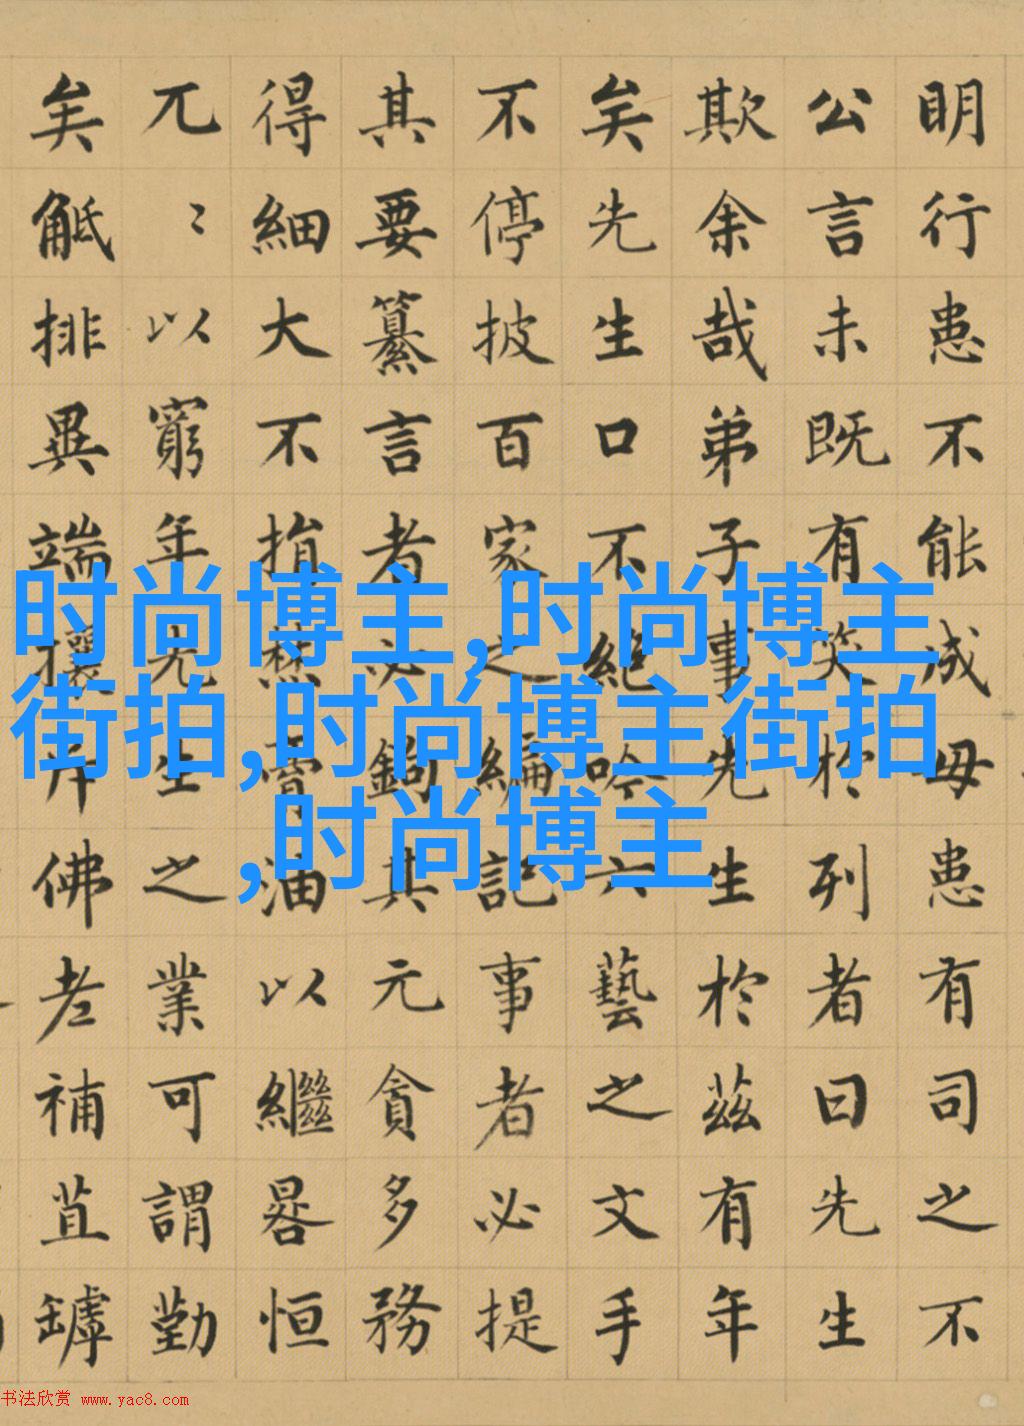 明行患不能成毋患有司之不
公言未既有笑於列者曰先生
欺余哉弟子事先生於茲有年
矣先生口不絕吟六藝之文手
不停披百家之編記事者必提
其要纂言者必鉤其元貪多務
得細大不捐焚膏油以繼晷恒
兀〻以窮年先生之業可謂勤
矣觝排異端攘斥佛老補苴罅
时尚博主,时尚博主
街拍,时尚博主街拍
,时尚博主
书法欣赏 www.yac8.com